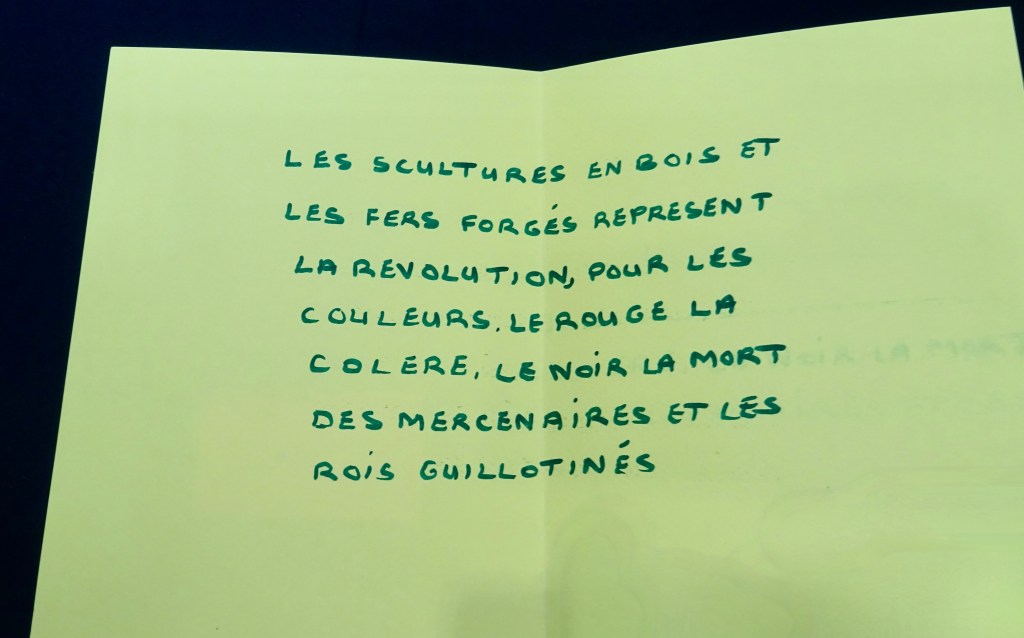 LES SCULTURES EN BOIS ET
LES FERS FORGÉS REPRESENT
LA REVOLUTION, POUR LES
COULEURS. LE ROUGE LA
COLERE. LE NOIR LA MORT
DES MERCENAIRES ET LES
ROIS GUILLOTINÉS